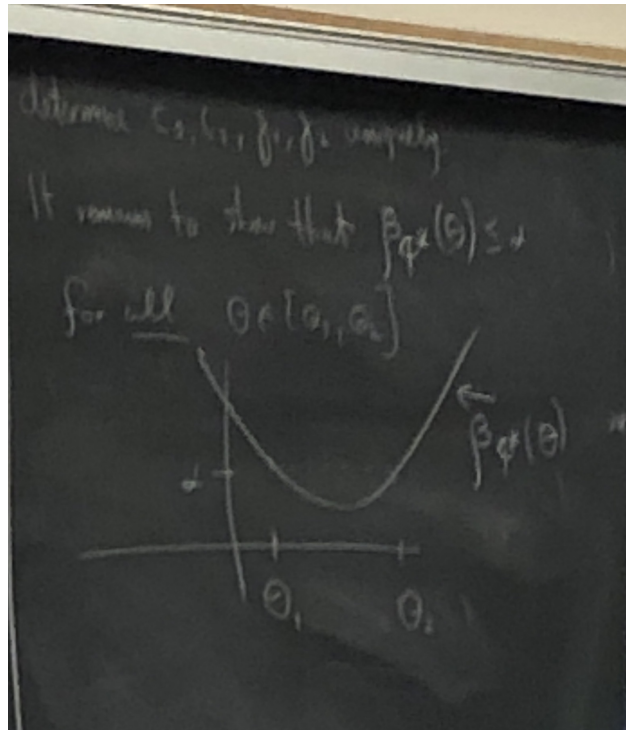 determine C₁, C₂, γ₁, γ₂ uniquely.
It remains to show that β_φ*(θ) ≤ α
for all θ ∈ [θ₁, θ₂]
← β_φ*(θ)
α
θ₁ θ₂